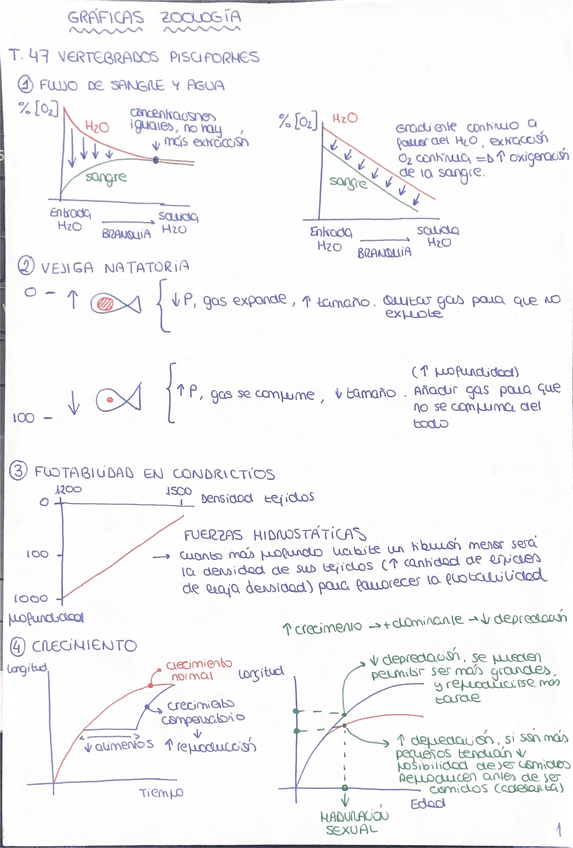 GRÁFICAS ZOOLOGÍA
T. 47 VERTEBRADOS PISCIFORMES
① FLUJO DE SANGRE Y AGUA
% [O₂]
H₂O
concentraciones
iguales, no hay
más extracción
sangre
Entrada
H₂O
BRANQUIA
salida
H₂O
% [O₂]
H₂O
sangre
Gradiente continuo a
favor del H₂O, extracción
O₂ continua => ↑ oxigenación
de la sangre.
Entrada
H₂O
BRANQUIA
salida
H₂O
② VEJIGA NATATORIA
0 - ↑
↓P, gas expande, ↑ tamaño. Quitar gas para que no
explote
100 - ↓
↑P, gas se comprime, ↓ tamaño.
(↑ profundidad)
Añadir gas para que
no se comprima del
todo
③ FLOTABILIDAD EN CONDRICTIOS
1200
1500
0
Densidad tejidos
100
1000
profundidad
FUERZAS HIDROSTÁTICAS
→ cuanto más profundo habite un tiburón menor será
la densidad de sus tejidos (↑ cantidad de lípidos
de baja densidad) para favorecer la flotabilidad
④ CRECIMIENTO
↑ crecimiento → + dominante → ↓ depredación
Longitud
crecimiento
normal
crecimiento
compensatorio
↓
↓ alimentos
↑ reproducción
Tiempo
Longitud
↓ depredación, se pueden
permitir ser más grandes
y reproducirse más
tarde
↑ depredación, si son más
pequeños tendrán ↓
posibilidad de ser comidos
Reproducen antes de ser
comidos (adelanta)
Edad
MADURACIÓN
SEXUAL
1